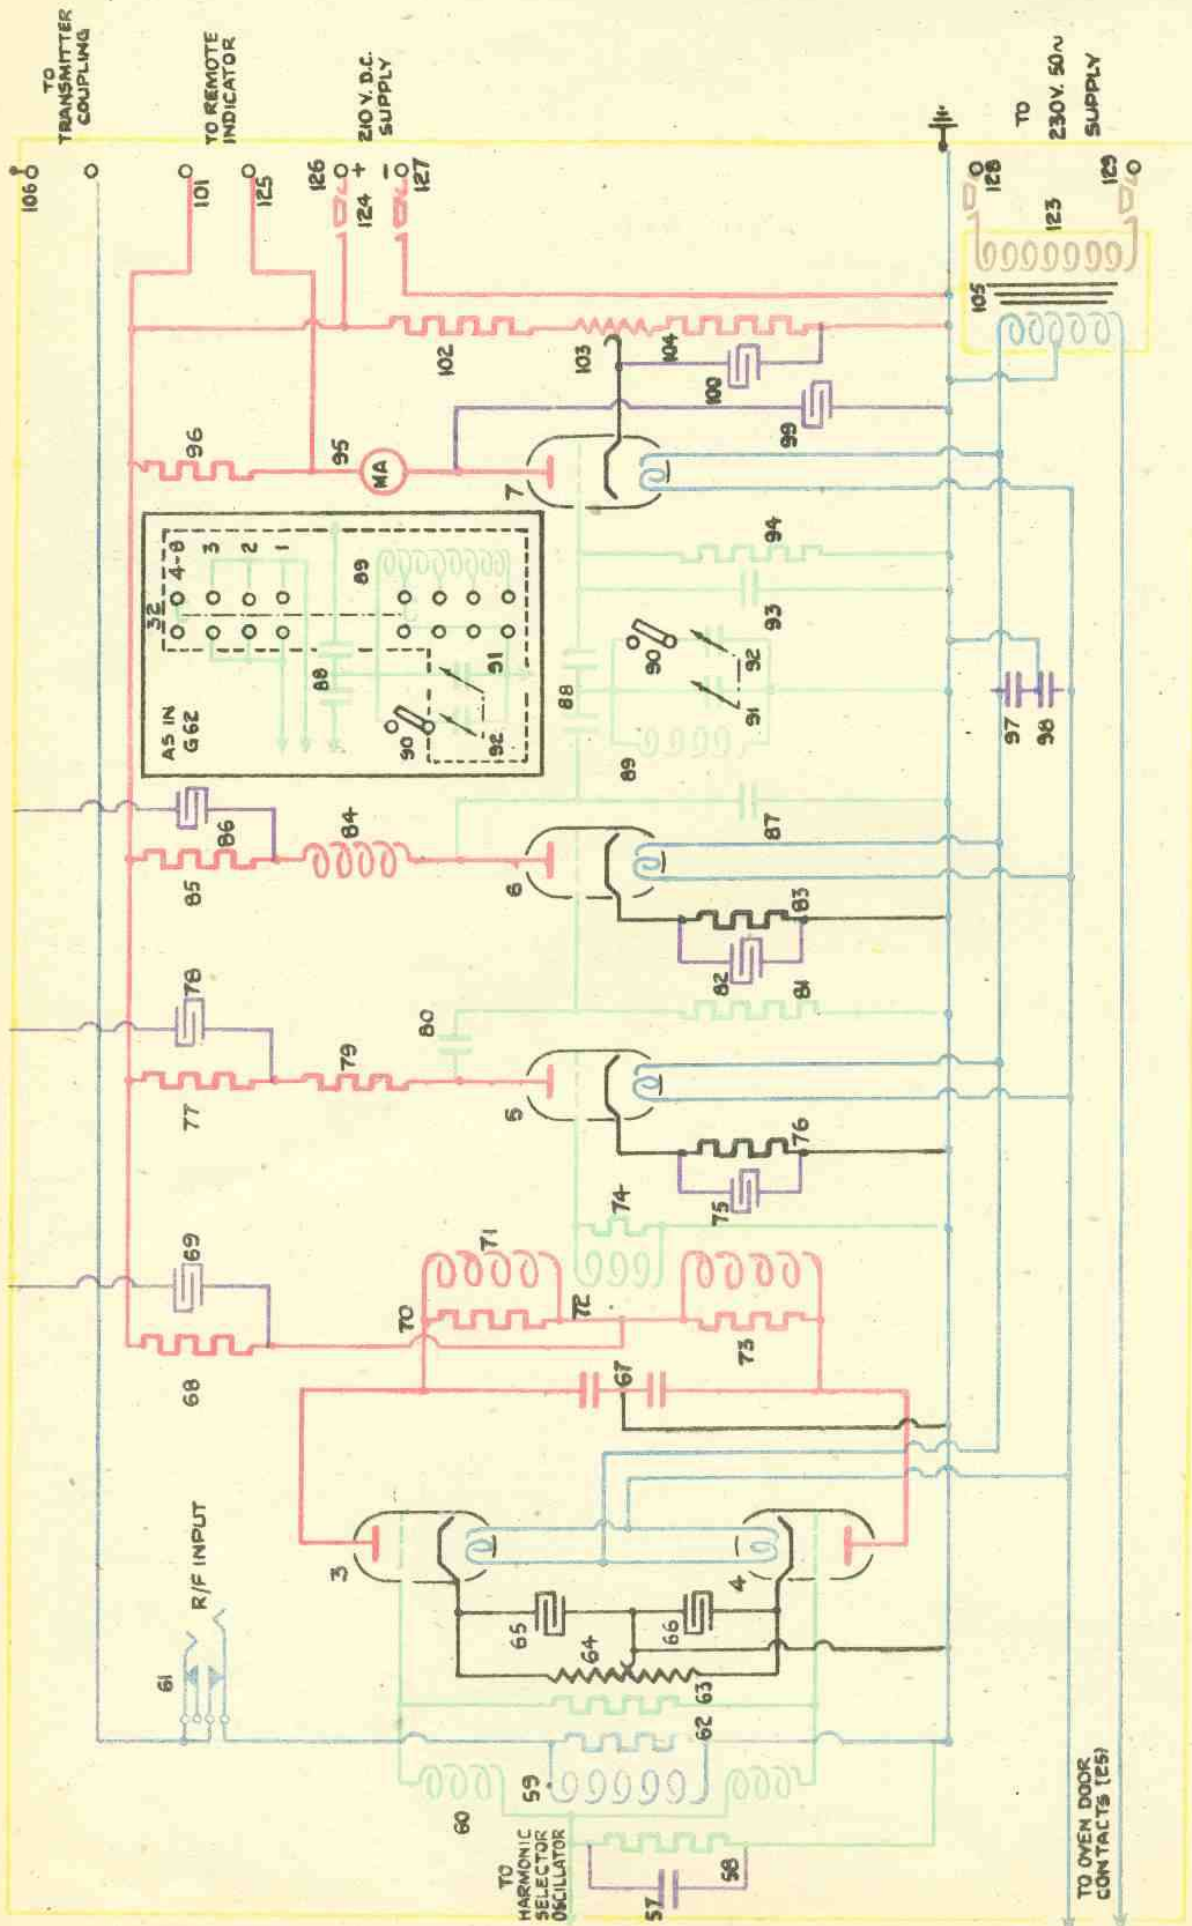 TO
TRANSMITTER
COUPLING
TO REMOTE
INDICATOR
210 V. D.C.
SUPPLY
TO
230V. 50~
SUPPLY
106
101
125
126
+
124
–
127
128
129
123
105
102
103
104
100
99
96
95
MA
7
94
93
92
91
90
88
89
32
4-8
3
2
1
89
88
91
90
92
AS IN
G62
97
98
86
85
84
6
87
83
82
81
80
78
77
79
5
76
75
74
69
68
71
70
72
73
67
R/F INPUT
61
3
4
65
66
64
63
62
59
60
58
57
TO
HARMONIC
SELECTOR
OSCILLATOR
TO OVEN DOOR
CONTACTS (25)